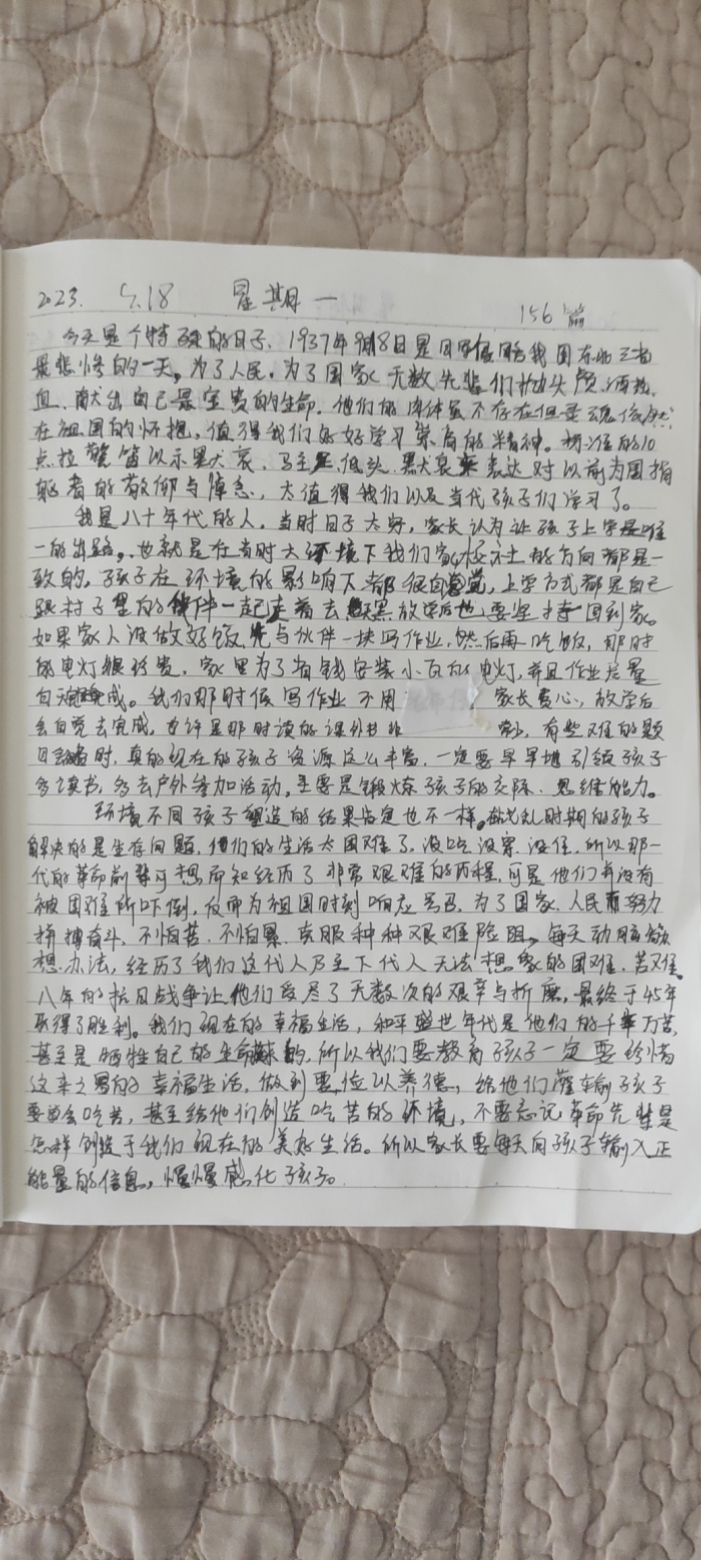 2023. 9.18 星期一 156篇
今天是个特殊的日子、1937年9月18日是日军侵略我国东北三省
最悲惨的一天。为了人民,为了国家无数先辈们抛头颅洒热
血、献出自己最宝贵的生命。他们的肉体虽不存在但灵魂依然
在祖国的怀抱,值得我们好好学习崇高的精神。的10
点拉警笛以示默哀、低头、默哀来表达对以前为国捐
躯者的敬仰与悼念,太值得我们以及当代孩子们学习了。
我是八十年代的人,当时日子太穷,家长认为让孩子上学是唯
一的出路,也就是在当时大环境下我们家校社的方向都是一
致的,孩子在环境的影响下都很自觉,上学方式都是自己
跟村子里的伙伴一起走着去放学后也要坚持回到家。
如果家人没做好饭,先与伙伴一块写作业,然后再吃饭,那时
的电灯很珍贵,家里为了省钱安装小瓦的电灯,并且作业尽量
白天完成。我们那时候写作业不用 家长费心,放学后
会自觉去完成,也许是那时读的课外书非 少,有些难的题
时,真的现在的孩子资源这么丰富,一定要早早地引领孩子
多读书,多去户外参加活动,主要是锻炼孩子的交际、思维能力。
环境不同孩子塑造的结果肯定也不一样。战乱时期的孩子
解决的是生存问题,他们的生活太困难了,没吃没穿没住,所以那一
代的革命前辈可想而知经历了非常艰难的历程,可是他们并没有
被困难所吓倒,反而为祖国时刻响应号召,为了国家、人民而努力
拼搏奋斗,不怕苦、不怕累、克服种种艰难险阻。每天动脑筋
想办法,经历了我们这代人乃至下代人无法想象的困难、苦难。
八年的抗日战争让他们受尽了无数次的艰辛与折磨,最终于45年
取得了胜利。我们现在的幸福生活,和平盛世年代是他们的千辛万苦,
甚至是牺牲自己的生命换来的,所以我们要教育孩子一定要珍惜
这来之不易的幸福生活,做到要位以养德,给他们灌输孩子
要学会吃苦,甚至给他们创造吃苦的环境,不要忘记革命先辈是
怎样创造了我们现在的美好生活。所以家长要每天向孩子输入正
能量的信息,慢慢感化孩子。